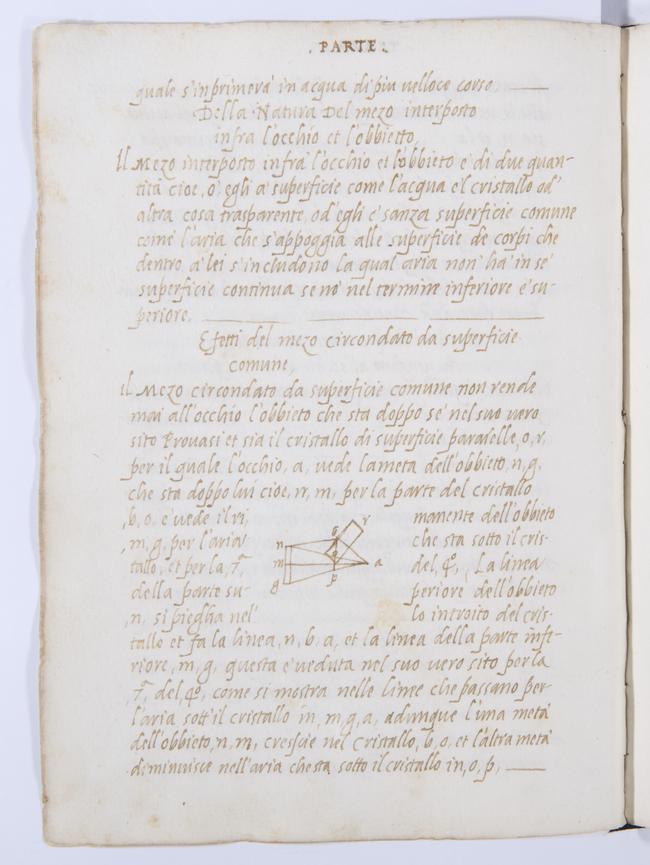 . PARTE .
quale s'inprimera in acqua di piu velloce corso
Della Natura Del mezo interposto
infra l'occhio et l'obbietto,
Il Mezo interposto infra l'occhio et l'obbieto e' di due quan-
tità cioe, o' egli a' superficie come l'acqua el cristallo od'
altra cosa trasparente, od'egli e' sanza superficie comune
come l'aria che s'appoggia alle superficie de corpi che
dentro a' lei s'includono la qual aria non ha' in se'
superficie continua se no' nel termine inferiore e' su-
periore.
Efetti del mezo circondato da superficie
comune,
il Mezo circondato da superficie comune non rende
mai all'occhio l'obbieto che sta doppo se' nel suo vero
sito Provasi et sia il cristallo di superficie paralelle, o, r,
per il quale l'occhio, a, vede la meta dell'obbieto, n, g,
che sta doppo lui cioe, n, m, per la parte del cristallo
,b, o, e' vede il ri, manente dell'obbieto
, m, g, per l'aria che sta sotto il cris-
tallo, et per la, 7ª, del, 4º, La linea
della parte su- periore dell'obbieto
,n, si piegha nel lo introito del cris-
tallo et fa la linea, n, b, a, et la linea della parte infe-
riore, m, g, questa e' veduta nel suo vero sito per la
,7ª, del, 4º, come si mostra nelle linee che passano per
l'aria sott'il cristallo in, m, g, a, adunque l'una metà
dell'obbieto, n, m, crescie nel cristallo, b, o, et l'altra metà
diminuisce nell'aria che sta sotto il cristallo in, o, p,
n
m
g
b
r
o
p
a